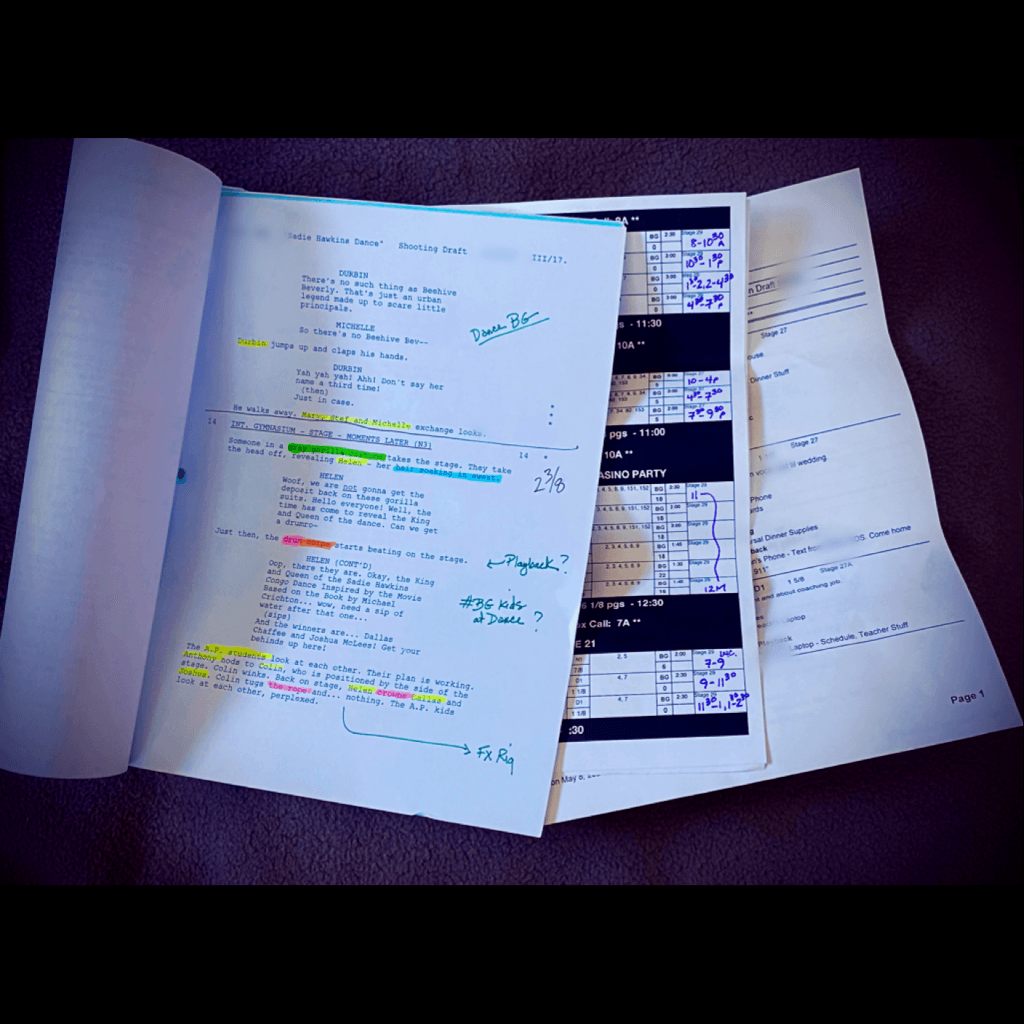 Sadie Hawkins Dance" Shooting Draft
III/17.
DURBIN
There's no such thing as Beehive
Beverly. That's just an urban
legend made up to scare little
principals.
Dance BG
MICHELLE
So there's no Beehive Bev--
Durbin jumps up and claps his hands.
DURBIN
Yah yah yah! Ahh! Don't say her
name a third time!
(then)
Just in case.
He walks away. Marvy, Stef and Michelle exchange looks.
14 INT. GYMNASIUM - STAGE - MOMENTS LATER (N3) 14
2 3/8
Someone in a gray gorilla costume takes the stage. They take
the head off, revealing Helen - her hair soaking in sweat.
HELEN
Woof, we are not gonna get the
deposit back on these gorilla
suits. Hello everyone! Well, the
time has come to reveal the King
and Queen of the dance. Can we get
a drumro-
Just then, the drum corps starts beating on the stage.
Playback?
HELEN (CONT'D)
Oop, there they are. Okay, the King
and Queen of the Sadie Hawkins
Congo Dance Inspired by the Movie
Based on the Book by Michael
Crichton... wow, need a sip of
water after that one...
(sips)
And the winners are... Dallas
Chaffee and Joshua McLees! Get your
behinds up here!
#BG Kids
at Dance ?
The A.P. students look at each other. Their plan is working.
Anthony nods to Colin, who is positioned by the side of the
stage. Colin winks. Back on stage, Helen crowns Dallas and
Joshua. Colin tugs the rope and... nothing. The A.P. kids
look at each other, perplexed.
FX Rig
8A **
BG 2:30 Stage 29
0
8-10 30 A
BG 3:00
0
10 30 - 1 30 P
BG 3:00
0
BG 3:00
0
4 30 - 7 30 P
gs - 11:30
10A **
10 - 4P
4 30 - 7 30
7 30 - 9 30 P
pgs - 11:00
10A **
ASINO PARTY
4, 5, 8, 9, 151, 152 BG Stage 29
18
11
1, 2, 3, 4, 5, 8, 9, 151, 152 BG 2:00 Stage 29
18
1, 2, 3, 4, 5, 8, 9 BG 3:00 Stage 29
18
2, 3, 4, 5, 8, 9 BG 1:45 Stage 29
22
2, 3, 4, 5, 8, 9 BG 1:30 Stage 29
16
12M
6 1/8 pgs - 12:30
ox Call: 7A **
E 21
N1 2, 5 BG 2:00 Stage 29
7/8 6
7-9
D1 4, 7 BG 2:30 Stage 29
1 1/8 0
9 - 11 30
D1 4, 7 BG 2:30 Stage 29
1 1/8 0
:30
n Draft
Stage 27
ouse
Dinner Stuff
Stage 27
wedding.
Phone
ards
rsal Dinner Supplies
back
n's Phone - Text from OS. Come home
911"
Stage 27A
D1 1 5/8
and about coaching job.
aptop
Playback
Laptop - Schedule, Teacher Stuff
Page 1
on May 8,